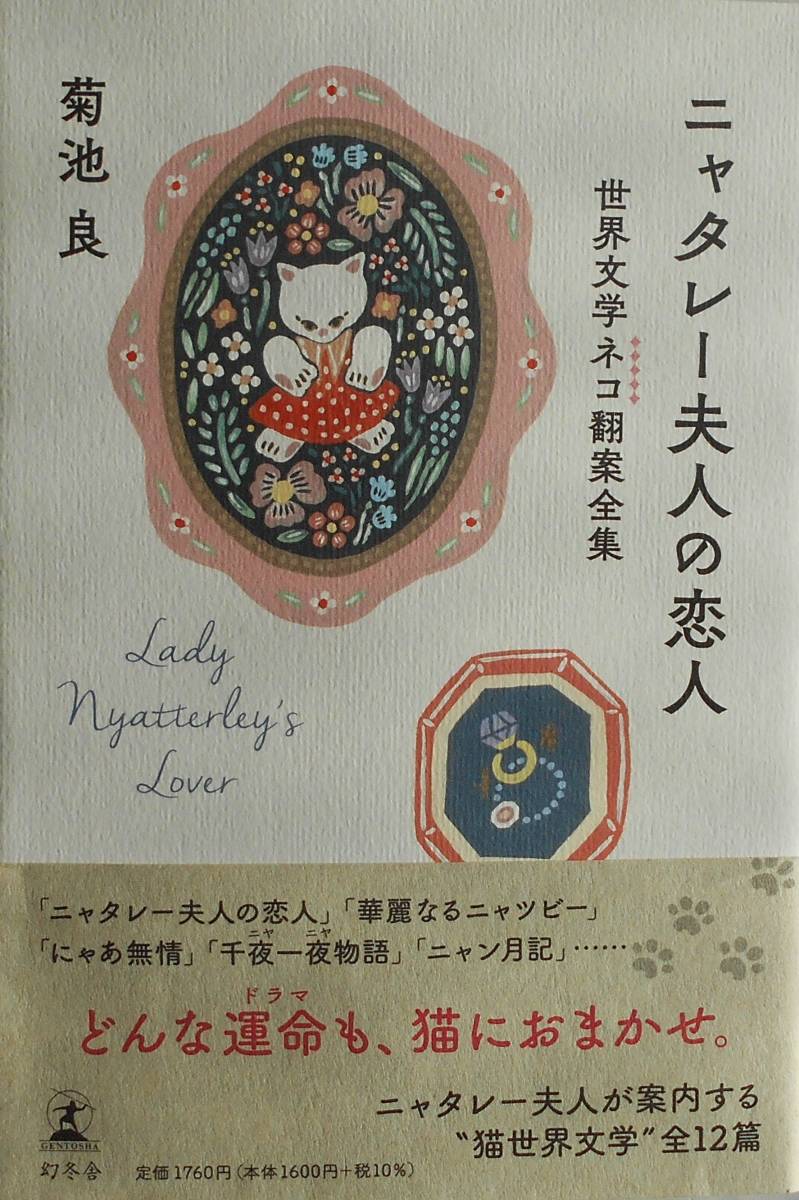 ニャタレー夫人の恋人
世界文学ネコ翻案全集
菊池 良
Lady
Nyatterley's
Lover
「ニャタレー夫人の恋人」「華麗なるニャツビー」
ニャ ニャ
「にゃあ無情」「千夜一夜物語」「ニャン月記」……
ドラマ
どんな運命も、猫におまかせ。
ニャタレー夫人が案内する
“猫世界文学”全12篇
GENTOSHA
幻冬舎
定価1760円(本体1600円+税10%)